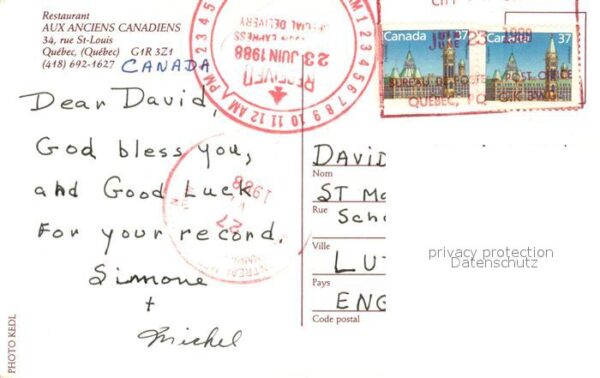 Restaurant
AUX ANCIENS CANADIENS
34, rue St-Louis
Québec, (Québec) G1R 3Z1
(418) 692-1627 CANADA
Dear David,
God bless you,
and Good Luck
For your record.
Simone
+
Michel
PHOTO KEDL
SPECIAL DELIVERY
23 JUIN 1988
RECEIVED
PM 1 2 3 4 5 6 7 8 9 10 11 12 AM / PM 1 2 3 4 5
27
1988
Canada 37
Canada 37
JUNE 23 1988
POST OFFICE
QUEBEC, PQ
DAVID
Nom
ST
Rue
Ville
LU
Pays
ENG
Code postal
privacy protection
Datenschutz